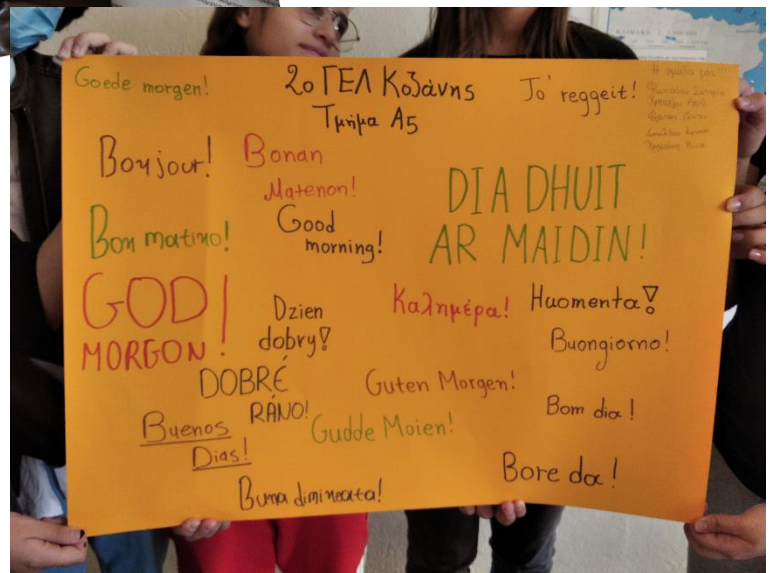 Goede morgen!
2ο ΓΕΛ Κοζάνης
Τμήμα Α5
Jo' reggeit!
Η ομάδα μας!!!!
Bonjour!
Bonan
Matenon!
DIA DHUIT
AR MAIDIN!
Bon matino!
Good
morning!
GOD
MORGON!
Dzien
dobry!
Καλημέρα!
Huomenta!
Buongiorno!
DOBRÉ
RÁNO!
Guten Morgen!
Bom dia!
Buenos
Dias!
Gudde Moien!
Bore da!
Buna dimineata!